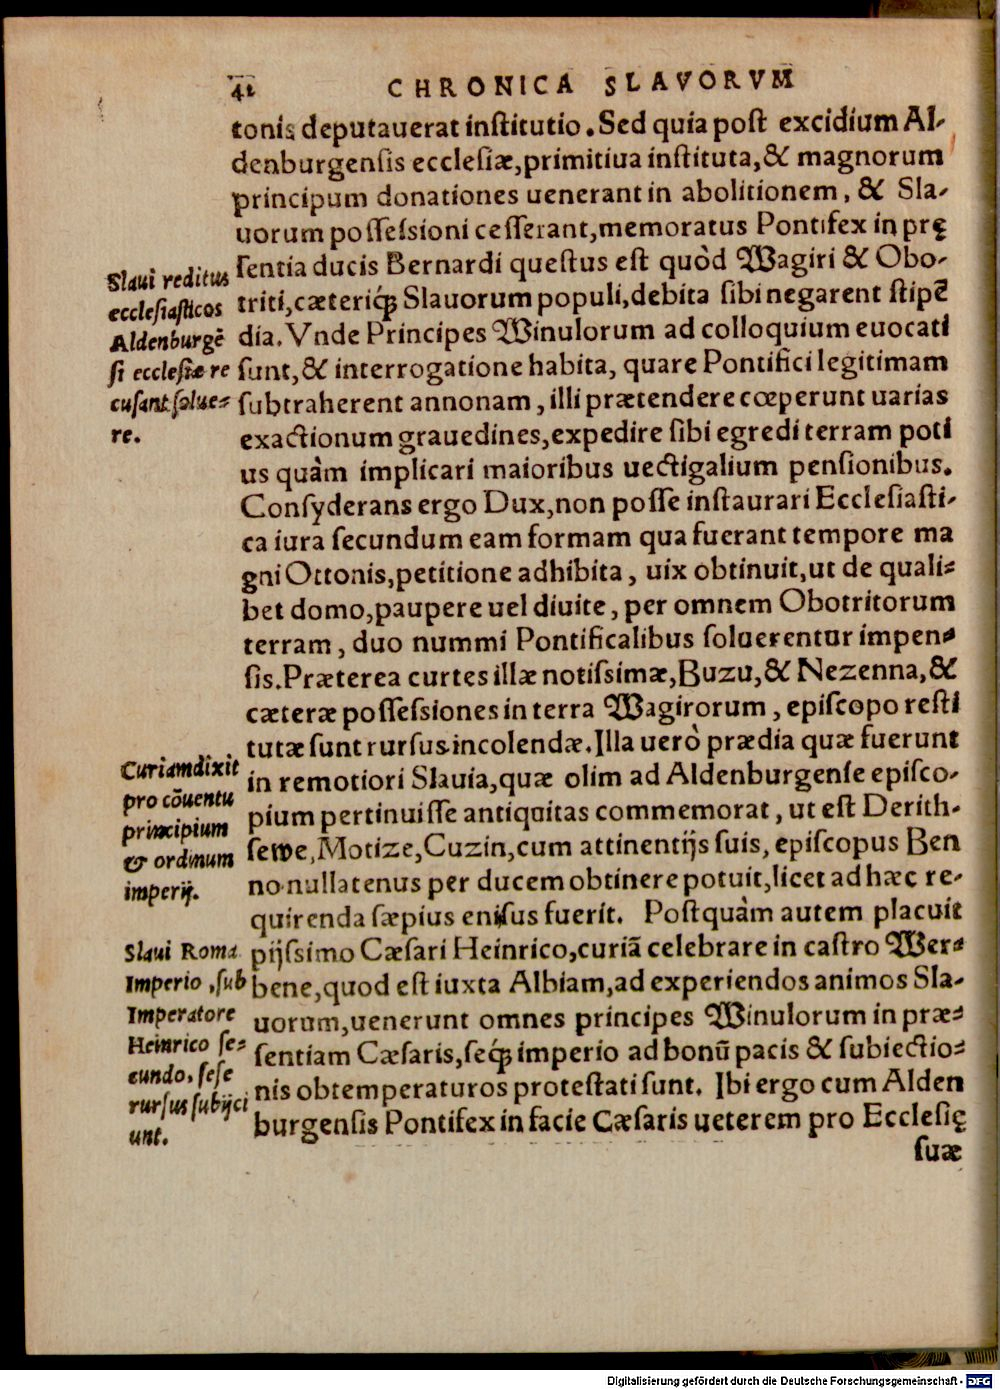 42 CHRONICA SLAVORVM
tonis deputauerat inſtitutio. Sed quia poſt excidium Al-
denburgenſis eccleſiæ, primitiua inſtituta, & magnorum
principum donationes uenerant in abolitionem, & Sla-
uorum poſſeſsioni ceſſerant, memoratus Pontifex in prę
ſentia ducis Bernardi queſtus eſt quòd Wagiri & Obo-
triti, cæteriq́; Slauorum populi, debita ſibi negarent ſtipē
dia. Vnde Principes Winulorum ad colloquium euocati
ſunt, & interrogatione habita, quare Pontifici legitimam
ſubtraherent annonam, illi prætendere cœperunt uarias
exactionum grauedines, expedire ſibi egredi terram poti
us quàm implicari maioribus uectigalium penſionibus.
Conſyderans ergo Dux, non poſſe inſtaurari Eccleſiaſti-
ca iura ſecundum eam formam qua fuerant tempore ma
gni Ottonis, petitione adhibita, uix obtinuit, ut de quali-
bet domo, paupere uel diuite, per omnem Obotritorum
terram, duo nummi Pontificalibus ſoluerentur impen-
ſis. Præterea curtes illæ notiſsimæ, Buzu, & Nezenna, &
cæteræ poſſeſsiones in terra Wagirorum, epiſcopo reſti
tutæ ſunt rurſus incolendæ. Illa uerò prædia quæ fuerunt
in remotiori Slauia, quæ olim ad Aldenburgenſe epiſco-
pium pertinuiſſe antiquitas commemorat, ut eſt Derith-
ſewe, Motize, Cuzin, cum attinentijs ſuis, epiſcopus Ben
no nullatenus per ducem obtinere potuit, licet ad hæc re-
quirenda ſæpius eniſus fuerit. Poſtquàm autem placuit
pijſsimo Cæſari Heinrico, curiā celebrare in caſtro Wer-
bene, quod eſt iuxta Albiam, ad experiendos animos Sla-
uorum, uenerunt omnes principes Winulorum in præ-
ſentiam Cæſaris, ſeq́; imperio ad bonū pacis & ſubiectio-
nis obtemperaturos proteſtati ſunt. Ibi ergo cum Alden
burgenſis Pontifex in facie Cæſaris ueterem pro Eccleſię
ſuæ
Slaui reditus
eccleſiaſticos
Aldenburgē
ſi eccleſiæ re
cuſant ſolue-
re.
Curiam dixit
pro cōuentu
principium
& ordinum
imperij.
Slaui Roma
Imperio, ſub
Imperatore
Heinrico ſe-
cundo, ſeſe
rurſus ſubijci
unt.
Digitalisierung gefördert durch die Deutsche Forschungsgemeinschaft - DFG